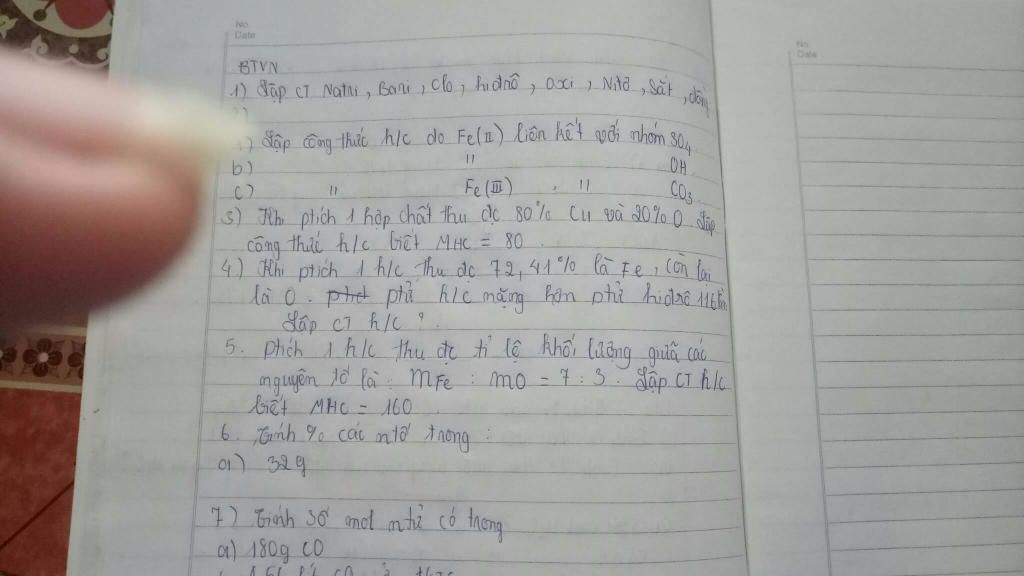 No.
Date
No.
Date
BTVN
1) Lập CT Natri, Bari, Clo, hiđrô, oxi, Nitơ, Sắt, đồng
) Lập công thức h/c do Fe(II) liên kết với nhóm SO4
b) " OH
c) " Fe(III) . " CO3
3) Khi ptích 1 hợp chất thu đc 80% Cu và 20% O. Lập
công thức h/c biết MHC = 80.
4.) Khi ptích 1 h/c thu đc 72,41% là Fe, còn lại
là O. ptử h/c nặng hơn ptử hiđrô 116 lần
Lập CT h/c ?
5. ptích 1 h/c thu đc tỉ lệ khối lượng giữa các
nguyên tố là : mFe : mO = 7 : 3. Lập CT h/c
biết MHC = 160
6. Tính % các ntố trong :
a) 32g
7) Tính số mol ntử có trong
a) 180g CO